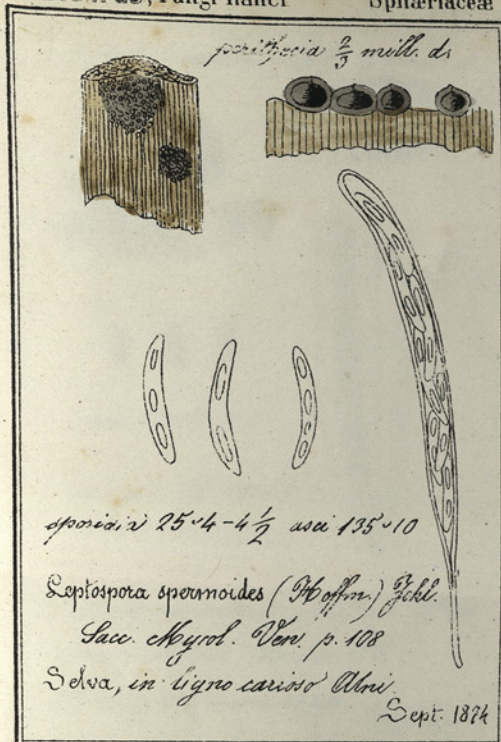 Fungi italici Sphæriaceæ
perithecia 2/3 mill. d.
sporidia 25 v 4-4 1/2 asci 135 v 10
Leptospora spermoides (Hoffm.) Fckl.
Sacc. Mycol. Ven. p. 108
Selva, in ligno carioso Alni
Sept. 1874